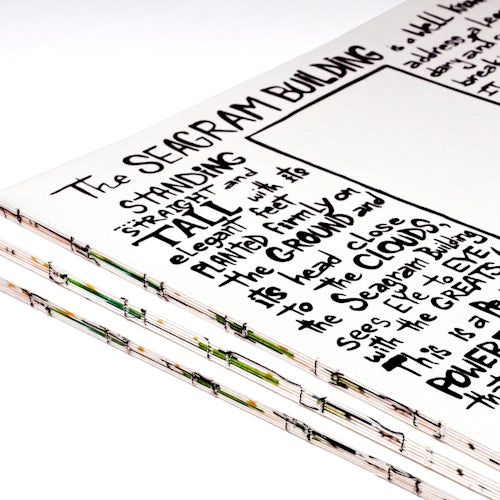 The SEAGRAM BUILDING is a Well Know
address
dary and
break
IT
STANDING
STRAIGHT and
TALL with its
elegant feet
PLANTED firmly on
the GROUND and
its head close
to the CLOUDS
the Seagram Building
sees EYE to EYE
with the GREATS
This is a
POWER